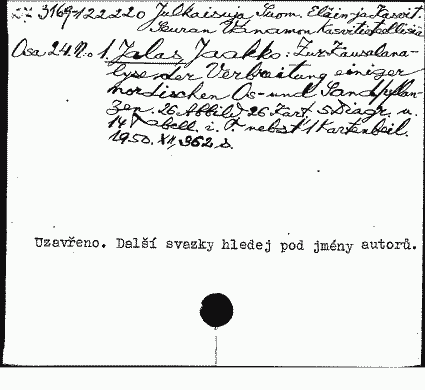 3169-122220 Julkaisuja Suom. Eläin- ja Kasvit.
Seuran Vanamon Kasvitieteellisiä
Osa 24. N:o 1. Jalas, Jaakko: Zur Kausalana-
lyse der Verbreitung einiger
nordischen Os- und Sandpflan-
zen. 26 Abbild., 26 Kart. 5 Diagr. u.
14 Tabell. i. T. nebst 1 Kartenbeil.
1950. XII, 362 s.
Uzavřeno. Další svazky hledej pod jmény autorů.